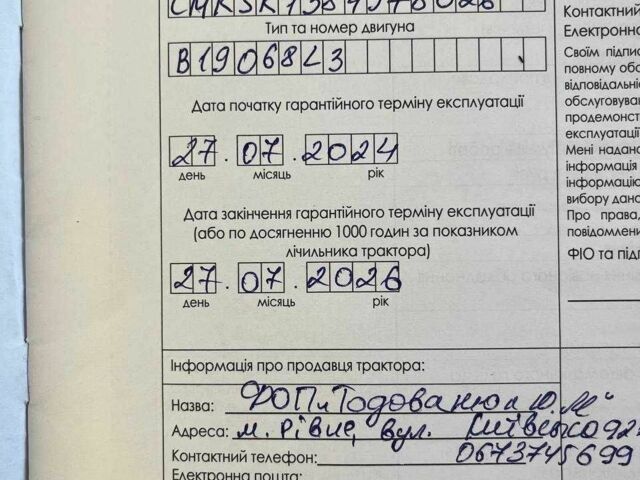 Тип та номер двигуна
B1906843
Дата початку гарантійного терміну експлуатації
27.07.2024
день місяць рік
Дата закінчення гарантійного терміну експлуатації
(або по досягненню 1000 годин за показником
лічильника трактора)
27.07.2026
день місяць рік
Інформація про продавця трактора:
Назва: ФОП
Адреса: м. Рівне, вул.
Контактний телефон: 0673745699
Електронна пошта:
Контактний
Електронно
Своїм підпис
повному обс
відповідальніс
обслуговува
продемонст
експлуатації
Мені надано
інформація
інформацію
вибору дано
Про права,
повідомлени
ФІО та підп